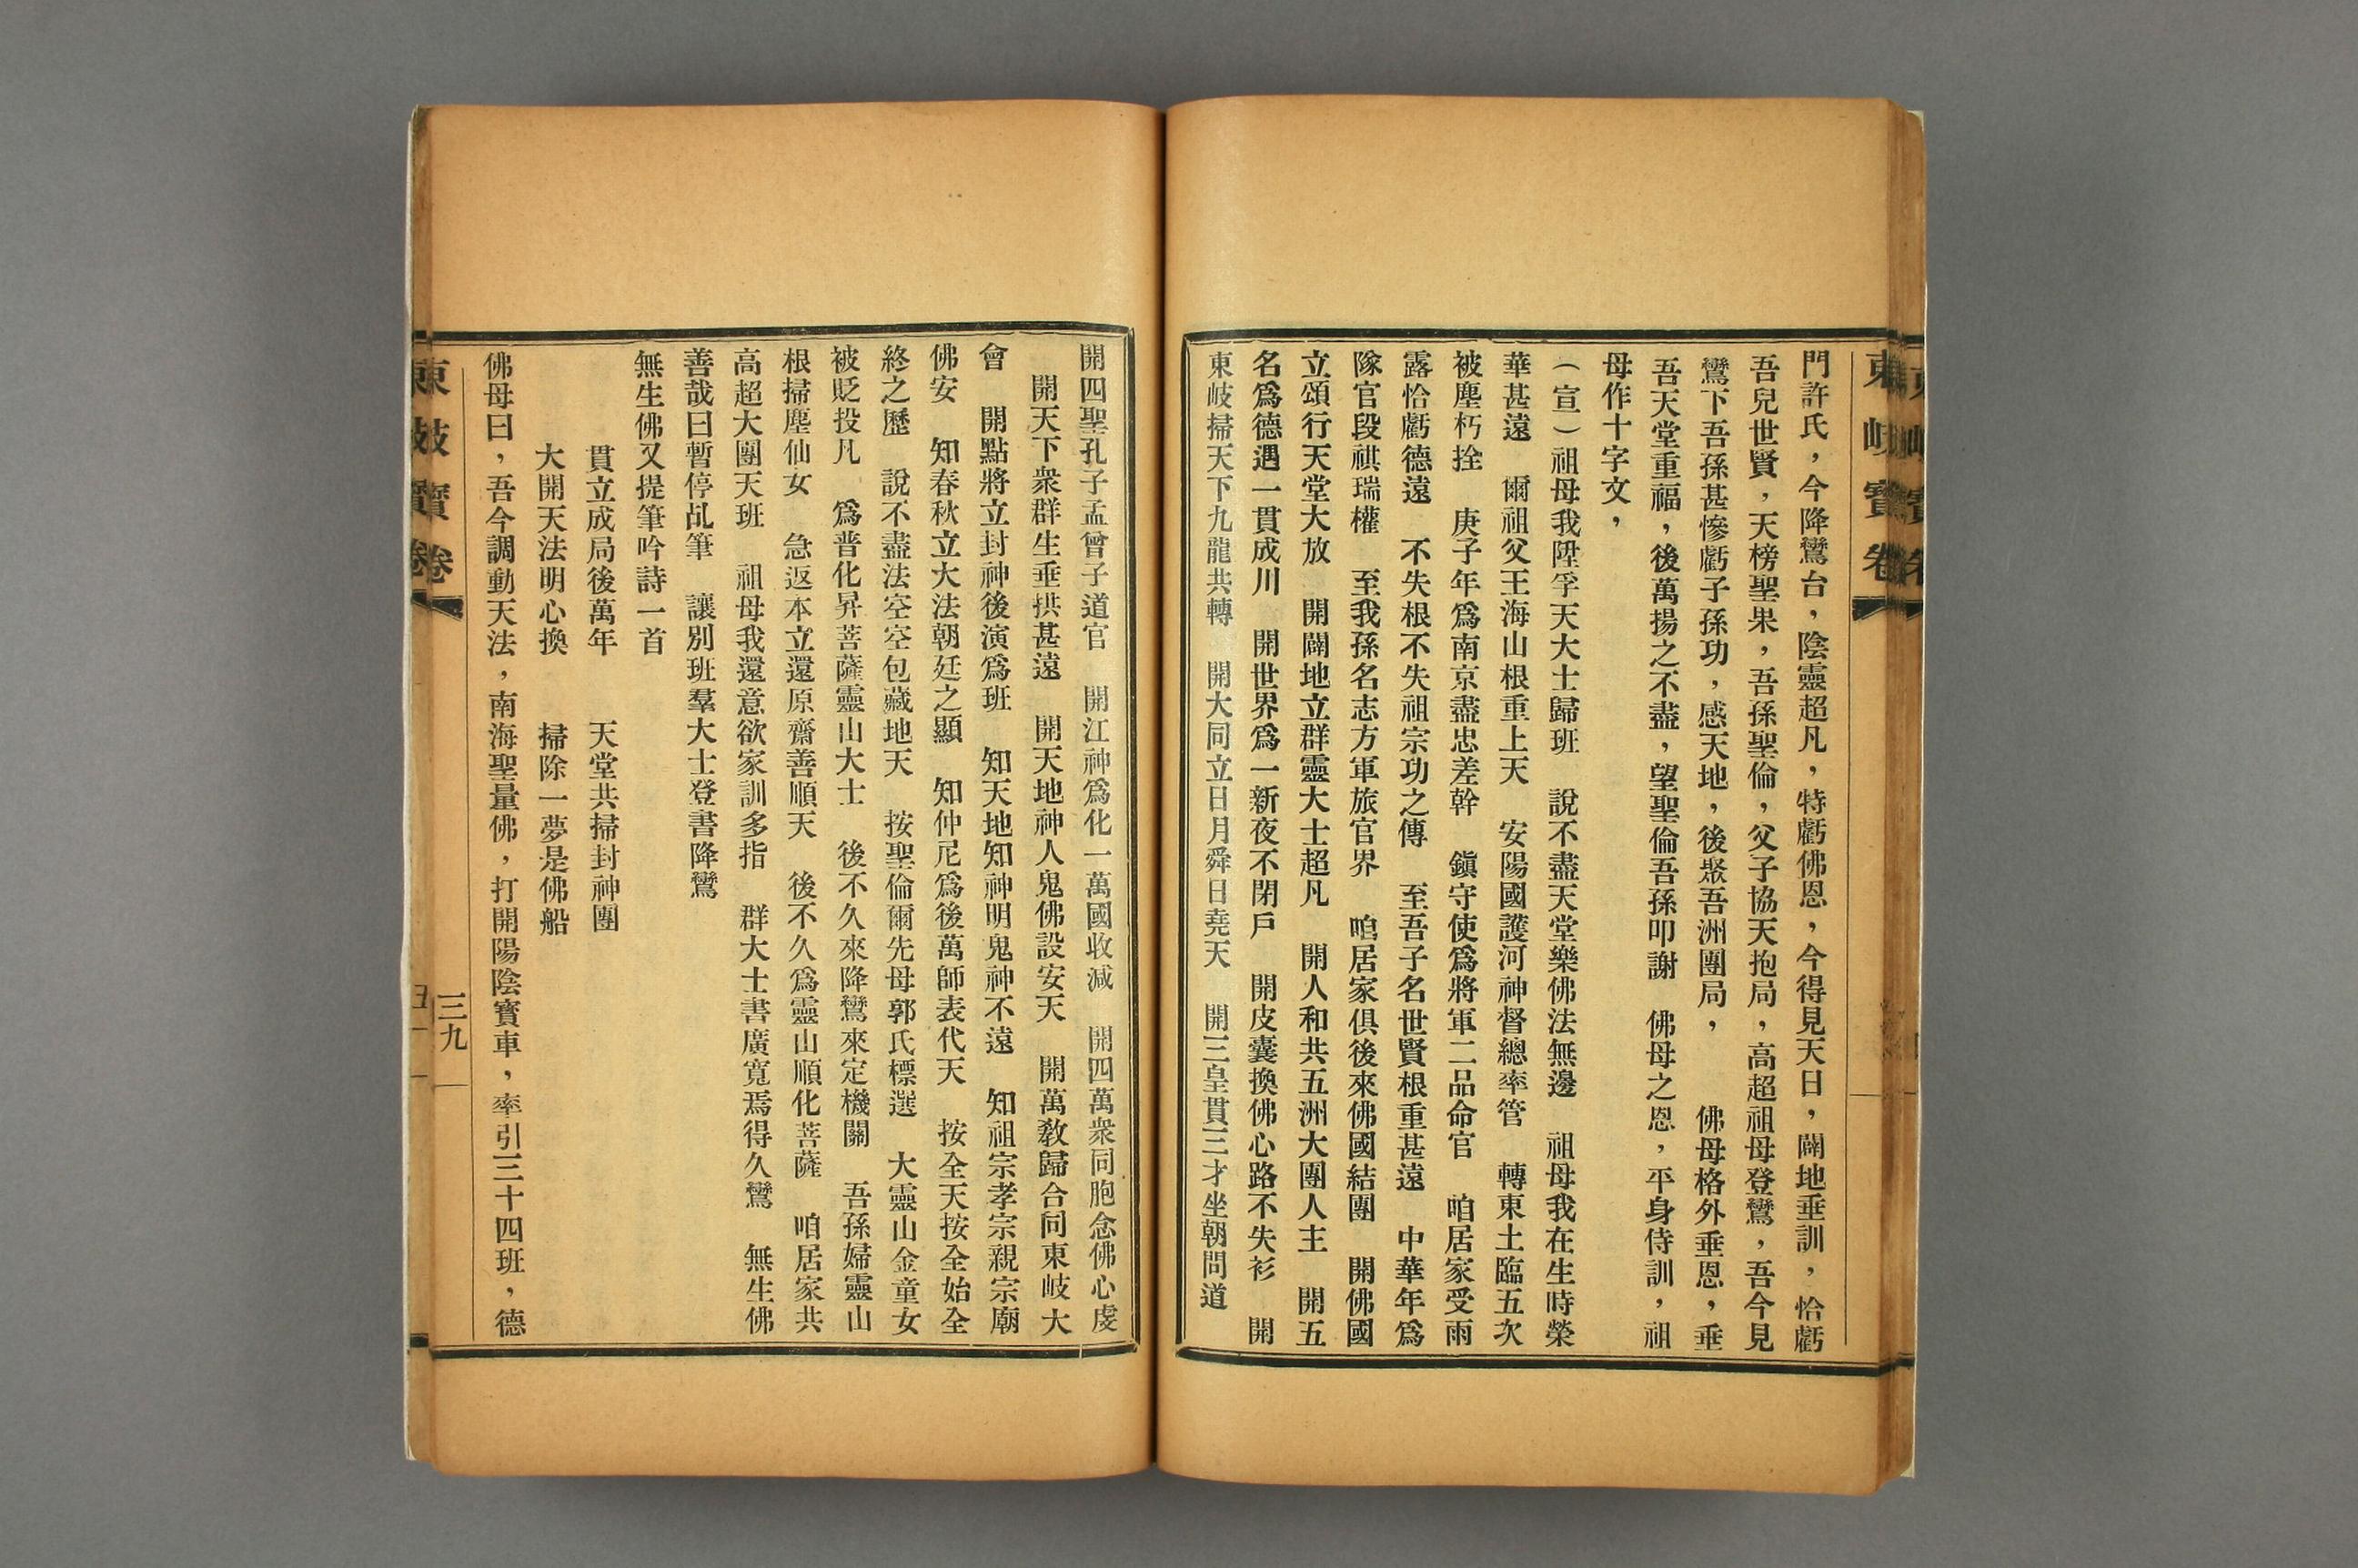 東岐寳卷
門許氏，今降鸞台，陰靈超凡，特虧佛恩，今得見天日，闢地垂訓，恰虧
吾兒世賢，天榜聖果，吾孫聖倫，父子協天抱局，高超祖母登鸞，吾今見
鸞下吾孫甚慘虧子孫功，感天地，後聚吾洲團局，　佛母格外垂恩，垂
吾天堂重福，後萬揚之不盡，望聖倫吾孫叩謝　佛母之恩，平身侍訓，祖
母作十字文，
（宣）祖母我陞孚天大士歸班　說不盡天堂樂佛法無邊　祖母我在生時榮
華甚遠　爾祖父王海山根重上天　安陽國護河神督總率管　轉東土臨五次
被塵朽拴　庚子年爲南京盡忠差幹　鎭守使爲將軍二品命官　咱居家受雨
露恰虧德遠　不失根不失祖宗功之傳　至吾子名世賢根重甚遠　中華年爲
隊官段祺瑞權　至我孫名志方軍旅官界　咱居家俱後來佛國結團　開佛國
立頌行天堂大放　開闢地立群靈大士超凡　開人和共五洲大團人主　開五
名爲德遇一貫成川　開世界爲一新夜不閉戶　開皮囊換佛心路不失衫　開
東岐掃天下九龍共轉　開大同立日月舜日堯天　開三皇貫三才坐朝問道
開四聖孔子孟曾子道官　開江神爲化一萬國收減　開四萬衆同胞念佛心虔
開天下衆群生垂拱甚遠　開天地神人鬼佛設安天　開萬敎歸合同東岐大
會　開點將立封神後演爲班　知天地知神明鬼神不遠　知祖宗孝宗親宗廟
佛安　知春秋立大法朝廷之顯　知仲尼爲後萬師表代天　按全天按全始全
終之歷　說不盡法空空包藏地天　按聖倫爾先母郭氏標選　大靈山金童女
被貶投凡　爲普化昇菩薩靈山大士　後不久來降鸞來定機關　吾孫婦靈山
根掃塵仙女　急返本立還原齋善順天　後不久爲靈山順化菩薩　咱居家共
高超大團天班　祖母我還意欲家訓多指　群大士書廣寬焉得久鸞　無生佛
善哉曰暫停乩筆　讓別班羣大士登書降鸞
無生佛又提筆吟詩一首
貫立成局後萬年　天堂共掃封神團
大開天法明心換　掃除一夢是佛船
佛母曰，吾今調動天法，南海聖量佛，打開陽陰寳車，率引三十四班，德
東岐寳卷
三九